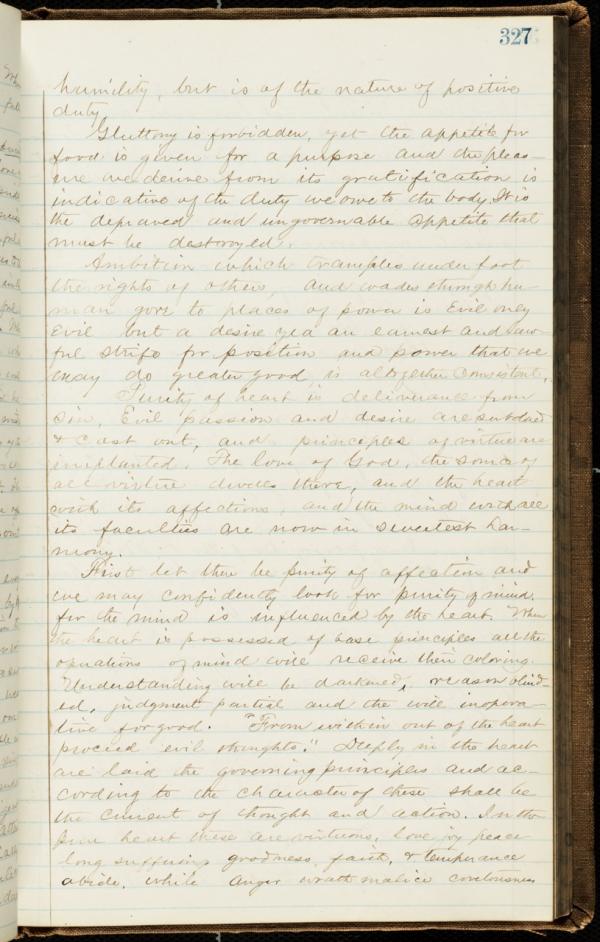 327
humility, but is of the nature of positive
duty
Gluttony is forbidden, yet the appetite for
food is given for a purpose and the pleas-
ure we derive from its gratification is
indicative of the duty we owe to the body. It is
the depraved and ungovernable appetite that
must be destroyed.
Ambition which tramples under foot
the rights of others, and wades through hu-
man gore to places of power is Evil only
Evil but a desire yea an earnest and
strife for position and power that we
may do greater good is altogether consistent.
Purity of heart is deliverance from
sin, Evil passion and desire are subdued
& cast out, and principles of virtue are
implanted. The love of God, the source of
all virtue there, and the heart
with its affections, and the mind with all
its faculties are now in sweetest har-
mony.
First let there be purity of affection and
we may confidently look for purity of mind.
for the mind is influenced by the heart. When
the heart is possessed of base principles all the
operations of mind will receive their coloring.
Understanding will be darkened, reason blind-
ed, judgment partial and the will inopera-
tive for good. "From within out of the heart
proceed evil thoughts." Deeply in the heart
are laid the governing principles and ac-
cording to the character of these shall be
the current of thought and action. In the
pure heart these are virtuous, love joy peace
long suffering goodness, faith, & temperance
abide. while anger wrath malice covetousness